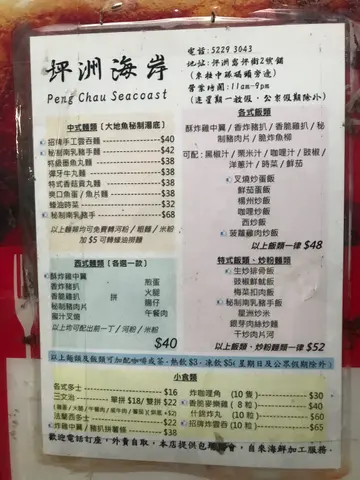 坪洲海岸
Peng Chau Seacoast
電話: 5229 3043
地址: 坪洲露坪街2號舖
(東柱中跌碼頭旁邊)
營業時間: 11am-9pm
(逢星期一放假, 公眾假期除外)
中式麵類 (大地魚秘制湯底)
招牌手工雲吞麵 $40
秘制南乳豬手麵 $42
特級墨魚丸麵 $38
彈牙牛丸麵 $38
特式香菇貢丸麵 $38
爽口魚蛋/魚片麵 $38
蠔油時菜 $32
秘制南乳豬手 $68
以上麵類均可免費轉河粉/粗麵/米粉
加$5可轉蠔油撈麵
西式麵類 (各選一款)
酥炸雞中翼 煎蛋
香炸豬扒 火腿
香脆雞扒 拼 腸仔
秘制豬肉片 午餐肉
蜜汁叉燒
以上均可配出前一丁/河粉/米粉
$40
各式飯類
酥炸雞中翼/香炸豬扒/香脆雞扒/秘
制豬肉片/脆炸魚柳
可配: 黑椒汁/粟米汁/咖哩汁/豉椒/
洋蔥汁/時菜/鮮茄
叉燒炒蛋飯
鮮茄蛋飯
楊州炒飯
咖哩炒飯
西炒飯
菠蘿雞肉炒飯
以上飯類一律 $48
特式飯類、炒粉麵類
生炒排骨飯
豉椒鮮魷飯
梅菜扣肉飯
秘制南乳豬手飯
星洲炒米
銀芽肉絲炒麵
干炒肉片河
以上飯類、炒粉麵類一律 $52
以上麵類及飯類可加配咖啡或茶,熱飲$3, 凍飲$5(星期日及公眾假期除外)
小食類
各式多士 $16
三文治 單拼 $18/雙拼 $22
法蘭西多士 $22
炸雞中翼/豬扒拼薯條 $38
炸咖哩角 (10 隻) $30
香脆麥樂雞 (8 粒) $40
什錦炸丸 (10 粒) $60
招牌炸雲吞 (10 粒) $65